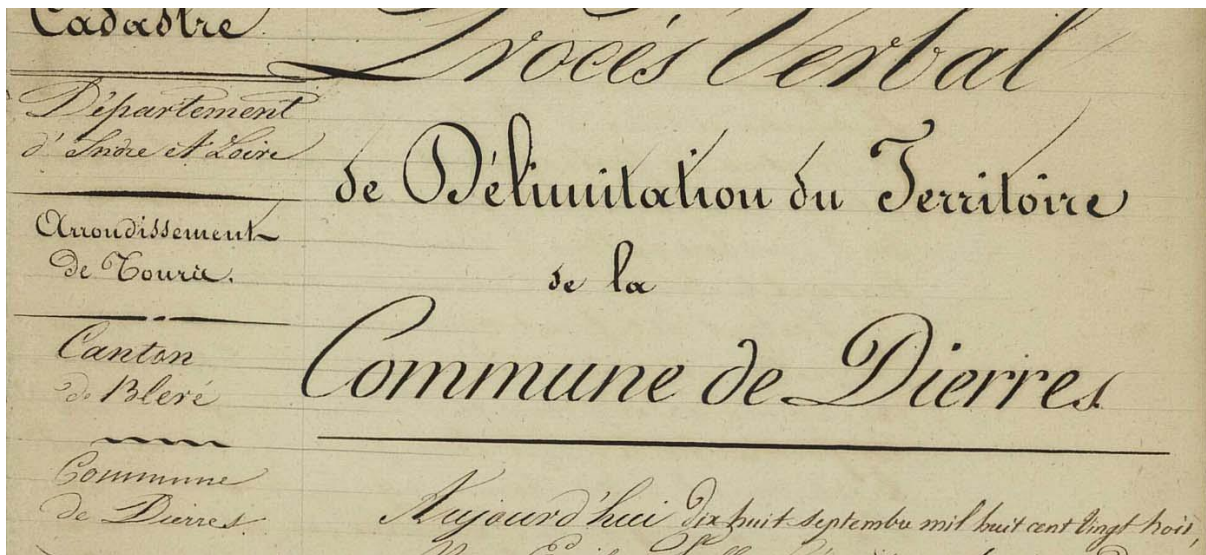 Cadastre
Département
d'Indre et Loire
Arrondissement
de Tours.
Canton
de Bleré
Commune
de Dierres
Procés Verbal
de Délimitation du Territoire
de la
Commune de Dierres
Aujourd'hui dix huit septembre mil huit cent vingt trois,